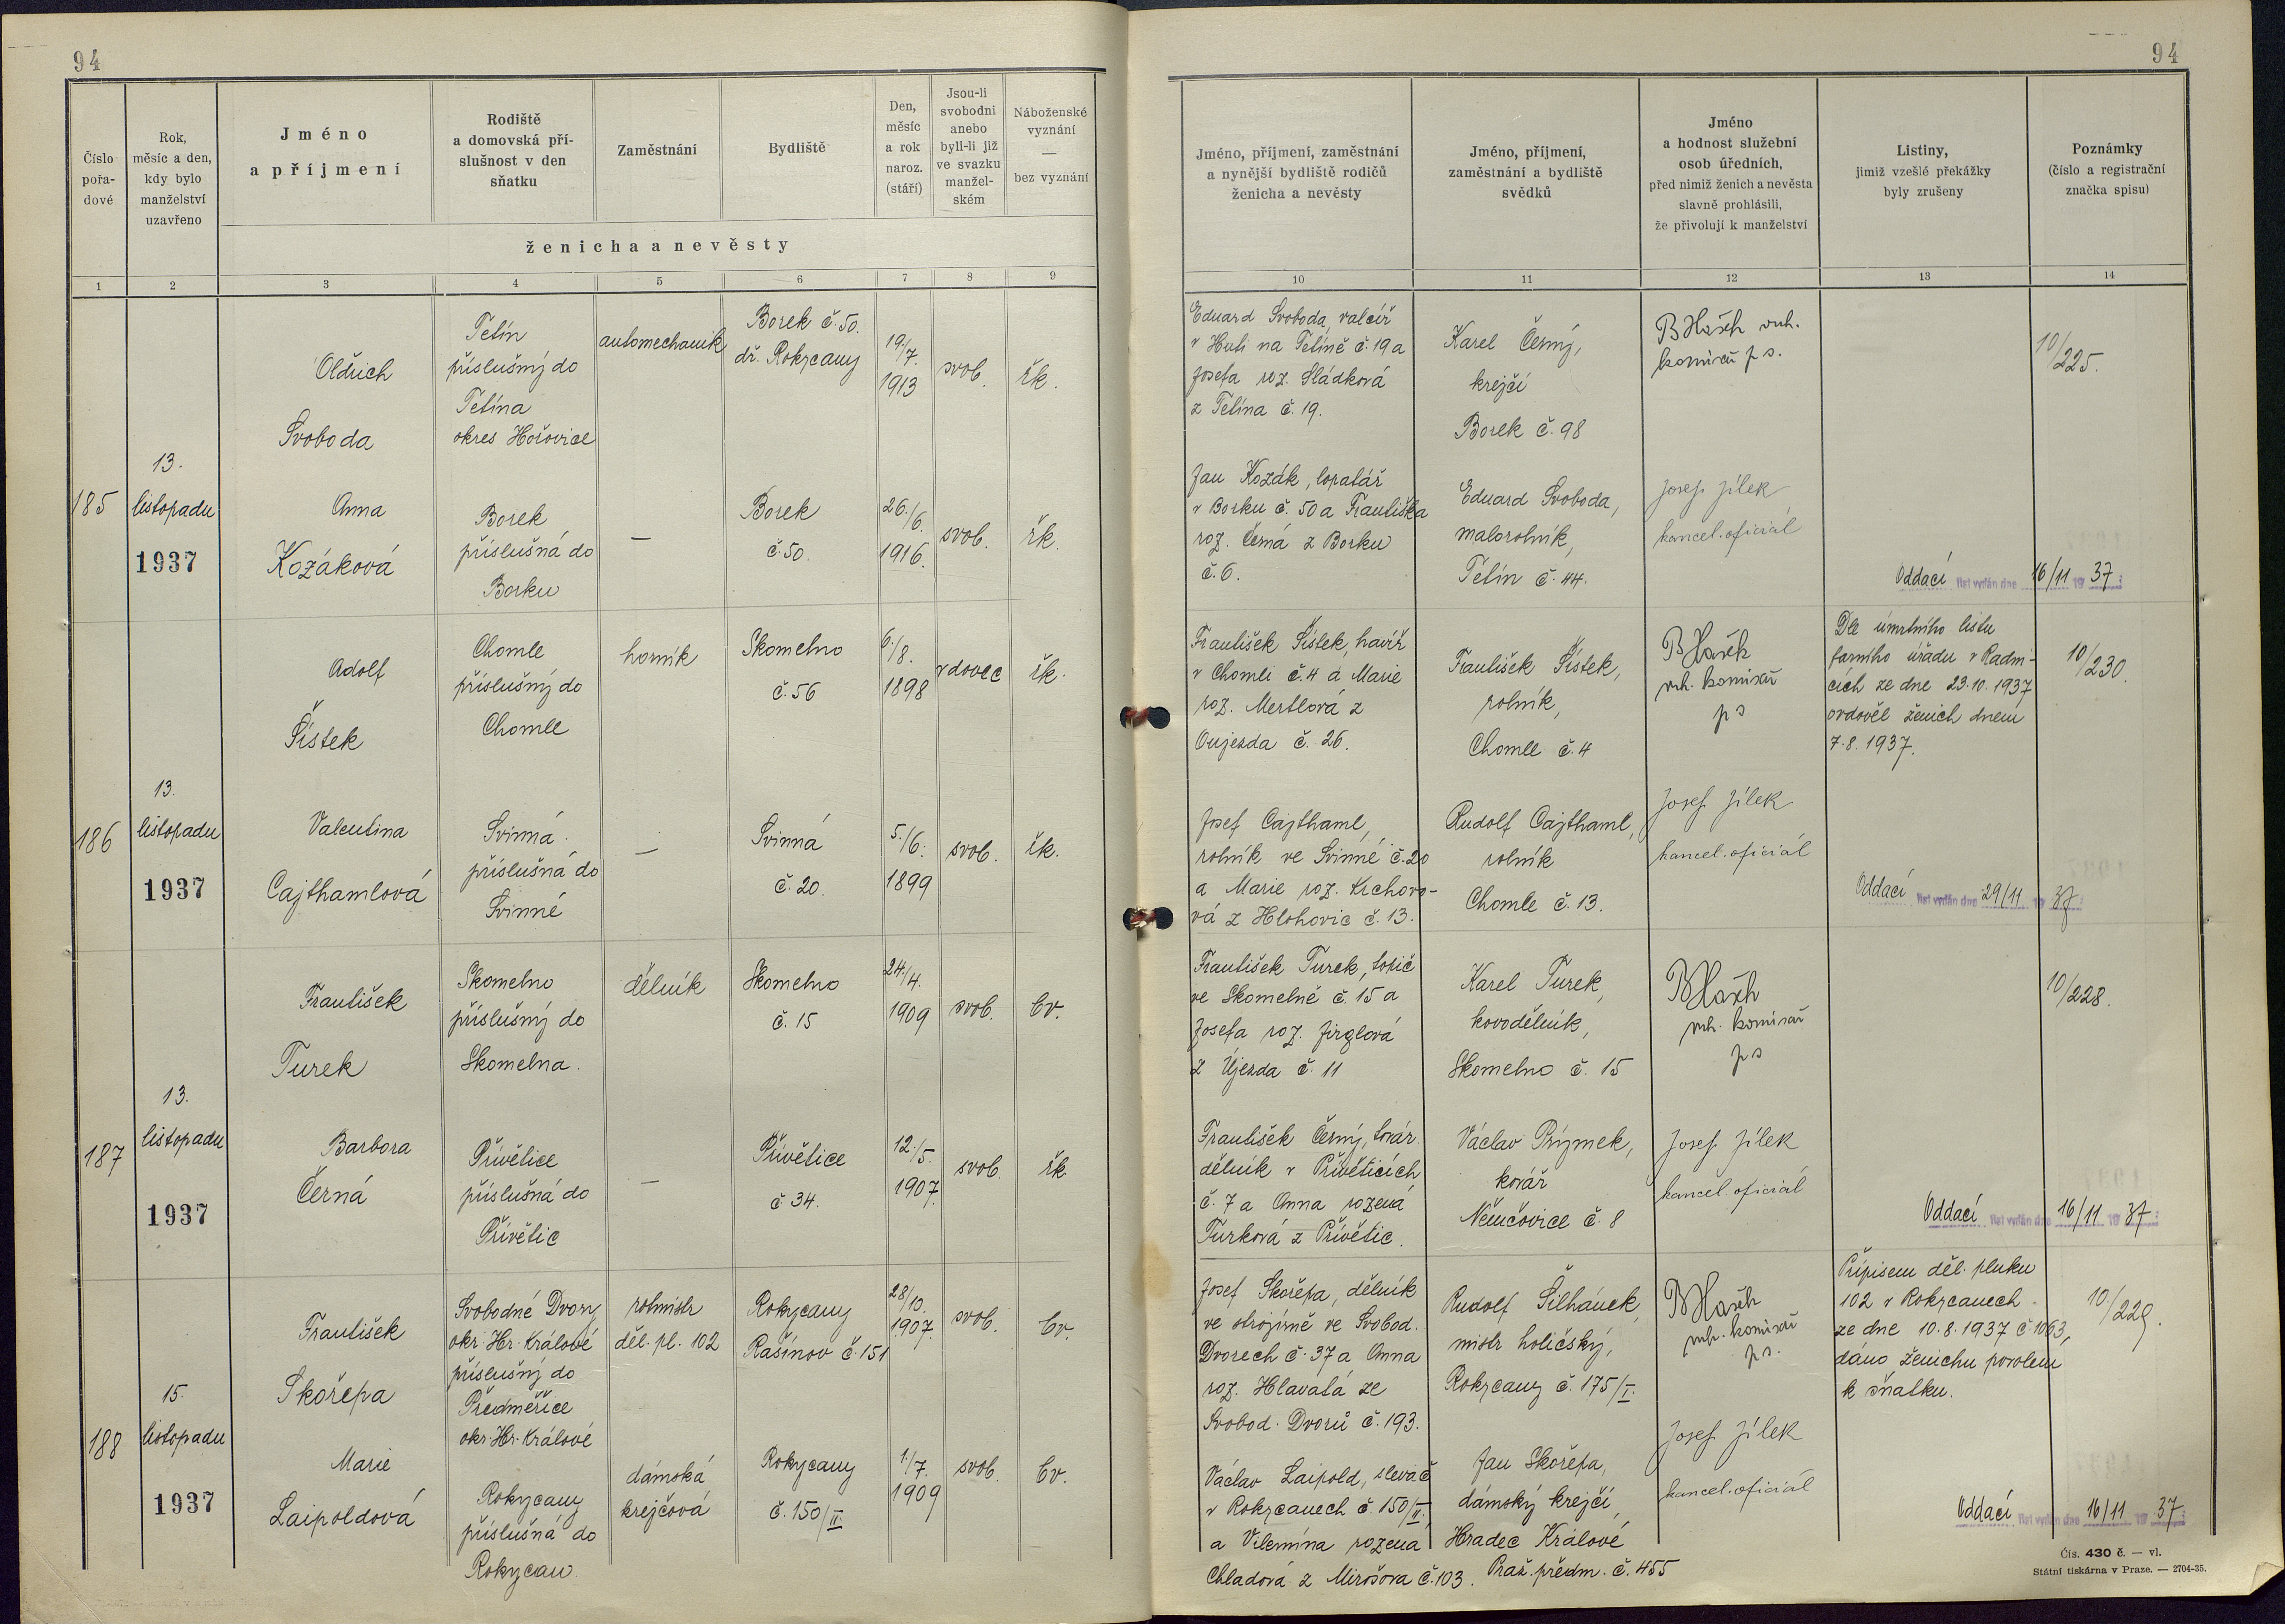 94
94
Číslo
pořa-
dové
Rok,
měsíc a den,
kdy bylo
manželství
uzavřeno
Jméno
a příjmení
Rodiště
a domovská pří-
slušnost v den
sňatku
Zaměstnání
Bydliště
Den,
měsíc
a rok
naroz.
(stáří)
Jsou-li
svobodni
anebo
byli-li již
ve svazku
manžel-
ském
Náboženské
vyznání
—
bez vyznání
ženicha a nevěsty
Jméno, příjmení, zaměstnání
a nynější bydliště rodičů
ženicha a nevěsty
Jméno, příjmení,
zaměstnání a bydliště
svědků
Jméno
a hodnost služební
osob úředních,
před nimiž ženich a nevěsta
slavně prohlásili,
že přivolují k manželství
Listiny,
jimiž vzešlé překážky
byly zrušeny
Poznámky
(číslo a registrační
značka spisu)
1 2 3 4 5 6 7 8 9
10 11 12 13 14
185
13.
listopadu
1937
Oldřich
Svoboda
Tetín
příslušný do
Tetína
okres Hořovice
automechanik
Borek č. 50.
dř. Rokycany
19./7.
1913
svob.
řk.
Eduard Svoboda, valcíř
v Huti na Tetíně č. 19 a
Josefa roz. Sládková
z Tetína č. 19.
Karel Černý,
krejčí
Borek č. 98
komisař p. s.
10/225.
Anna
Kozáková
Borek
příslušná do
Borku
—
Borek
č. 50.
26./6.
1916.
svob.
řk.
Jan Kozák, lopatář
v Borku č. 50 a Františka
roz. Černá z Borku
č. 6.
Eduard Svoboda,
malorolník,
Tetín č. 44.
Josef Jílek
kancel. oficiál
Oddací list vydán dne 16/11 1937
186
13.
listopadu
1937
Adolf
Šístek
Chomle
příslušný do
Chomle
horník
Skomelno
č. 56
6./8.
1898
vdovec
řk.
František Šístek, havíř
v Chomli č. 4 a Marie
roz. Mertlová z
Oujezda č. 26.
František Šístek,
rolník,
Chomle č. 4
komisař
p s
Dle úmrtního listu
farního úřadu v Radni-
cích ze dne 23.10.1937
ovdověl ženich dnem
7.8.1937.
10/230
Valentina
Cajthamlová
Svinná
příslušná do
Svinné
—
Svinná
č. 20.
5./6.
1899
svob.
řk.
Josef Cajthaml,
rolník ve Svinné č. 20
a Marie roz. Krchovo-
vá z Hlohovic č. 13.
Rudolf Cajthaml,
rolník
Chomle č. 13.
Josef Jílek
kancel. oficiál
Oddací list vydán dne 29/11 1937
187
13.
listopadu
1937
František
Turek
Skomelno
příslušný do
Skomelna.
dělník
Skomelno
č. 15
24./4.
1909
svob.
bv.
František Turek, topič
ve Skomelně č. 15 a
Josefa roz. Jirglová
z Újezda č. 11
Karel Turek,
kovodělník,
Skomelno č. 15
komisař
p s
10/228.
Barbora
Černá
Přívětice
příslušná do
Přívětic
—
Přívětice
č 34.
12./5.
1907.
svob.
řk
František Černý, továr
dělník v Přívěticích
č. 7 a Anna rozená
Turková z Přívětic.
Václav Prýmek,
kovář
Němčovice č. 8
Josef Jílek
kancel. oficiál
Oddací list vydán dne 16/11 1937
188
15.
listopadu
1937
František
Skořepa
Svobodné Dvory
okr. Hr. Králové
příslušný do
Předměřice
okr. Hr. Králové
rotmistr
děl. pl. 102
Rokycany
Rašínov č. 151
28/10.
1907.
svob.
bv.
Josef Skořepa, dělník
ve strojírně ve Svobod.
Dvorech č. 37 a Anna
roz. Hlavatá ze
Svobod. Dvorů č. 193.
Rudolf Šilhánek,
mistr holičský,
Rokycany č. 175/I.
komisař
p. s.
Přípisem děl. pluku
102 v Rokycanech
ze dne 10.8.1937 č 1063,
dáno ženichu povolení
k sňatku.
10/229.
Marie
Laipoldová
Rokycany
příslušná do
Rokycan.
dámská
krejčová
Rokycany
č. 150/II.
1./7.
1909
svob.
bv.
Václav Laipold, slevač
v Rokycanech č 150/II.
a Vilemína rozená
Chladová z Mirošova č. 103.
Jan Skořepa,
dámský krejčí,
Hradec Králové
Praž. předm. č. 455
Josef Jílek
kancel. oficiál
Oddací list vydán dne 16/11 1937
Čís. 430 č. — vl.
Státní tiskárna v Praze. — 2704-35.